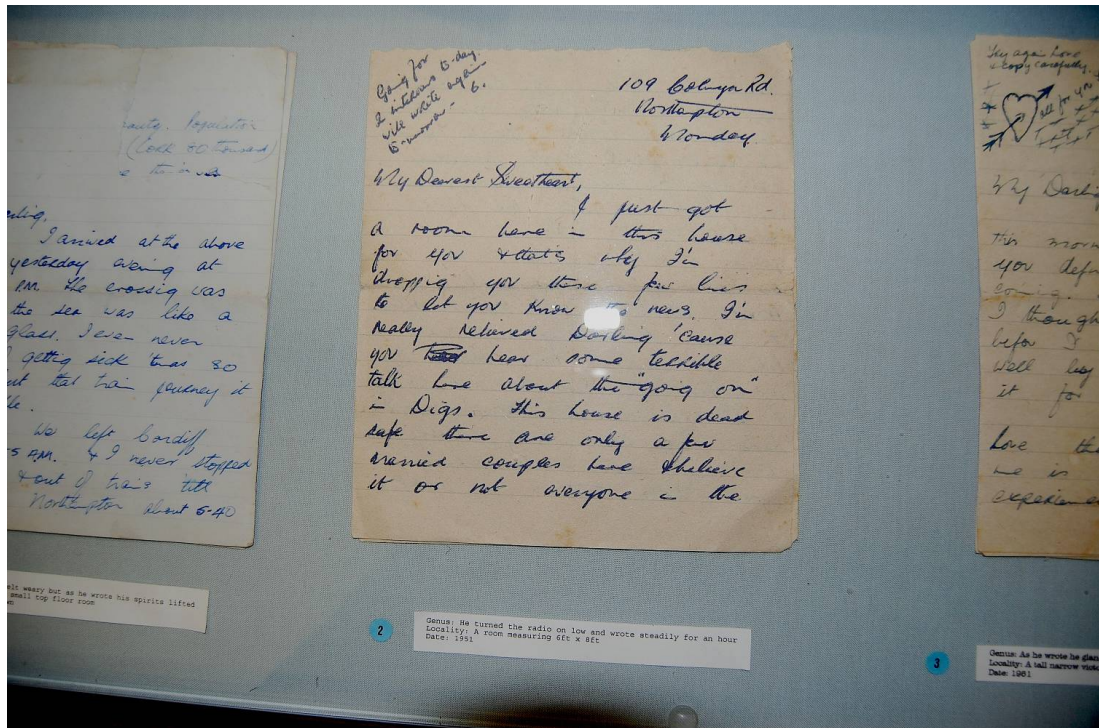 nauty. Population
(Cork 80 thousand)
rling,
I arrived at the above
yesterday evening at
P.M. The crossig was
the sea was like a
glass. I even never
gettig sick 'twas so
ut that train journey it
le.
We left Cardiff
5 A.M. & I never stopped
& out of trains till
Northampton about 5-40
elt weary but as he wrote his spirits lifted
small top floor room
wn
Going for
2 interviews to-day.
will write again
to-morrow - G.
109 Colwyn Rd.
Northampton
Monday
My Dearest Sweetheart,
I just got
a room here in this house
for you & that's why I'm
droppig you these few lines
to let you know the news. I'm
really relieved Darling 'cause
you hear some terrible
talk here about the "going on"
in Digs. This house is dead
safe there are only a few
married couples here & believe
it or not everyone in the
2
Genus: He turned the radio on low and wrote steadily for an hour
Locality: A room measuring 6ft x 8ft
Date: 1951
Try again love
& copy carefully.
all for you
My Darling
this morn
you defi
coming.
I though
befor I
well
it for
love the
me is
experience
3
Genus: As he wrote he glan
Locality: A tall narrow victo
Date: 1951